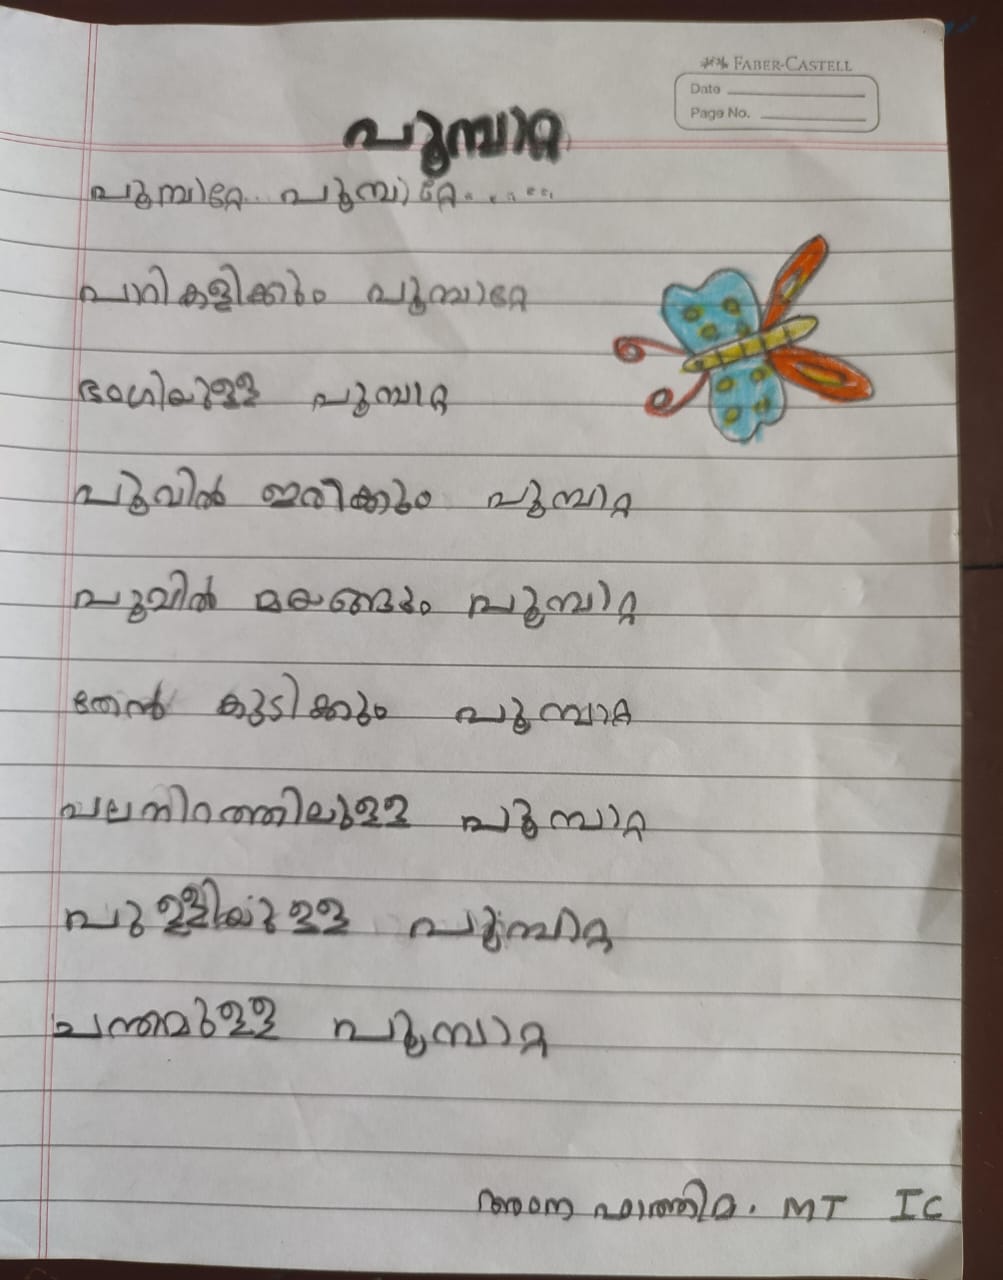 FABER-CASTELL
Date
Page No.
പൂമ്പാറ്റ
പൂമ്പാറ്റേ... പൂമ്പാറ്റേ.......
പാറികളിക്കും പൂമ്പാറ്റേ
ഭംഗിയുള്ള പൂമ്പാറ്റ
പൂവിൽ ഇരിക്കും പൂമ്പാറ്റ
പൂവിൽ മയങ്ങും പൂമ്പാറ്റ
തേൻ കുടിക്കും പൂമ്പാറ്റ
പലനിറത്തിലുള്ള പൂമ്പാറ്റ
പുള്ളിയുള്ള പൂമ്പാറ്റ
ചന്തമുള്ള പൂമ്പാറ്റ
ഫാത്തിമ. MT IC